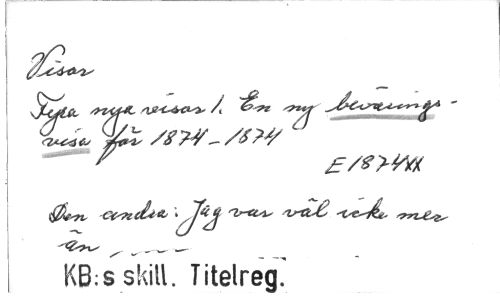 Visor
Fyra nya visor 1. En ny bevärings-
visa för 1874 - 1874
E 1874xx
Den andra: Jag var väl icke mer
än
KB:s skill. Titelreg.